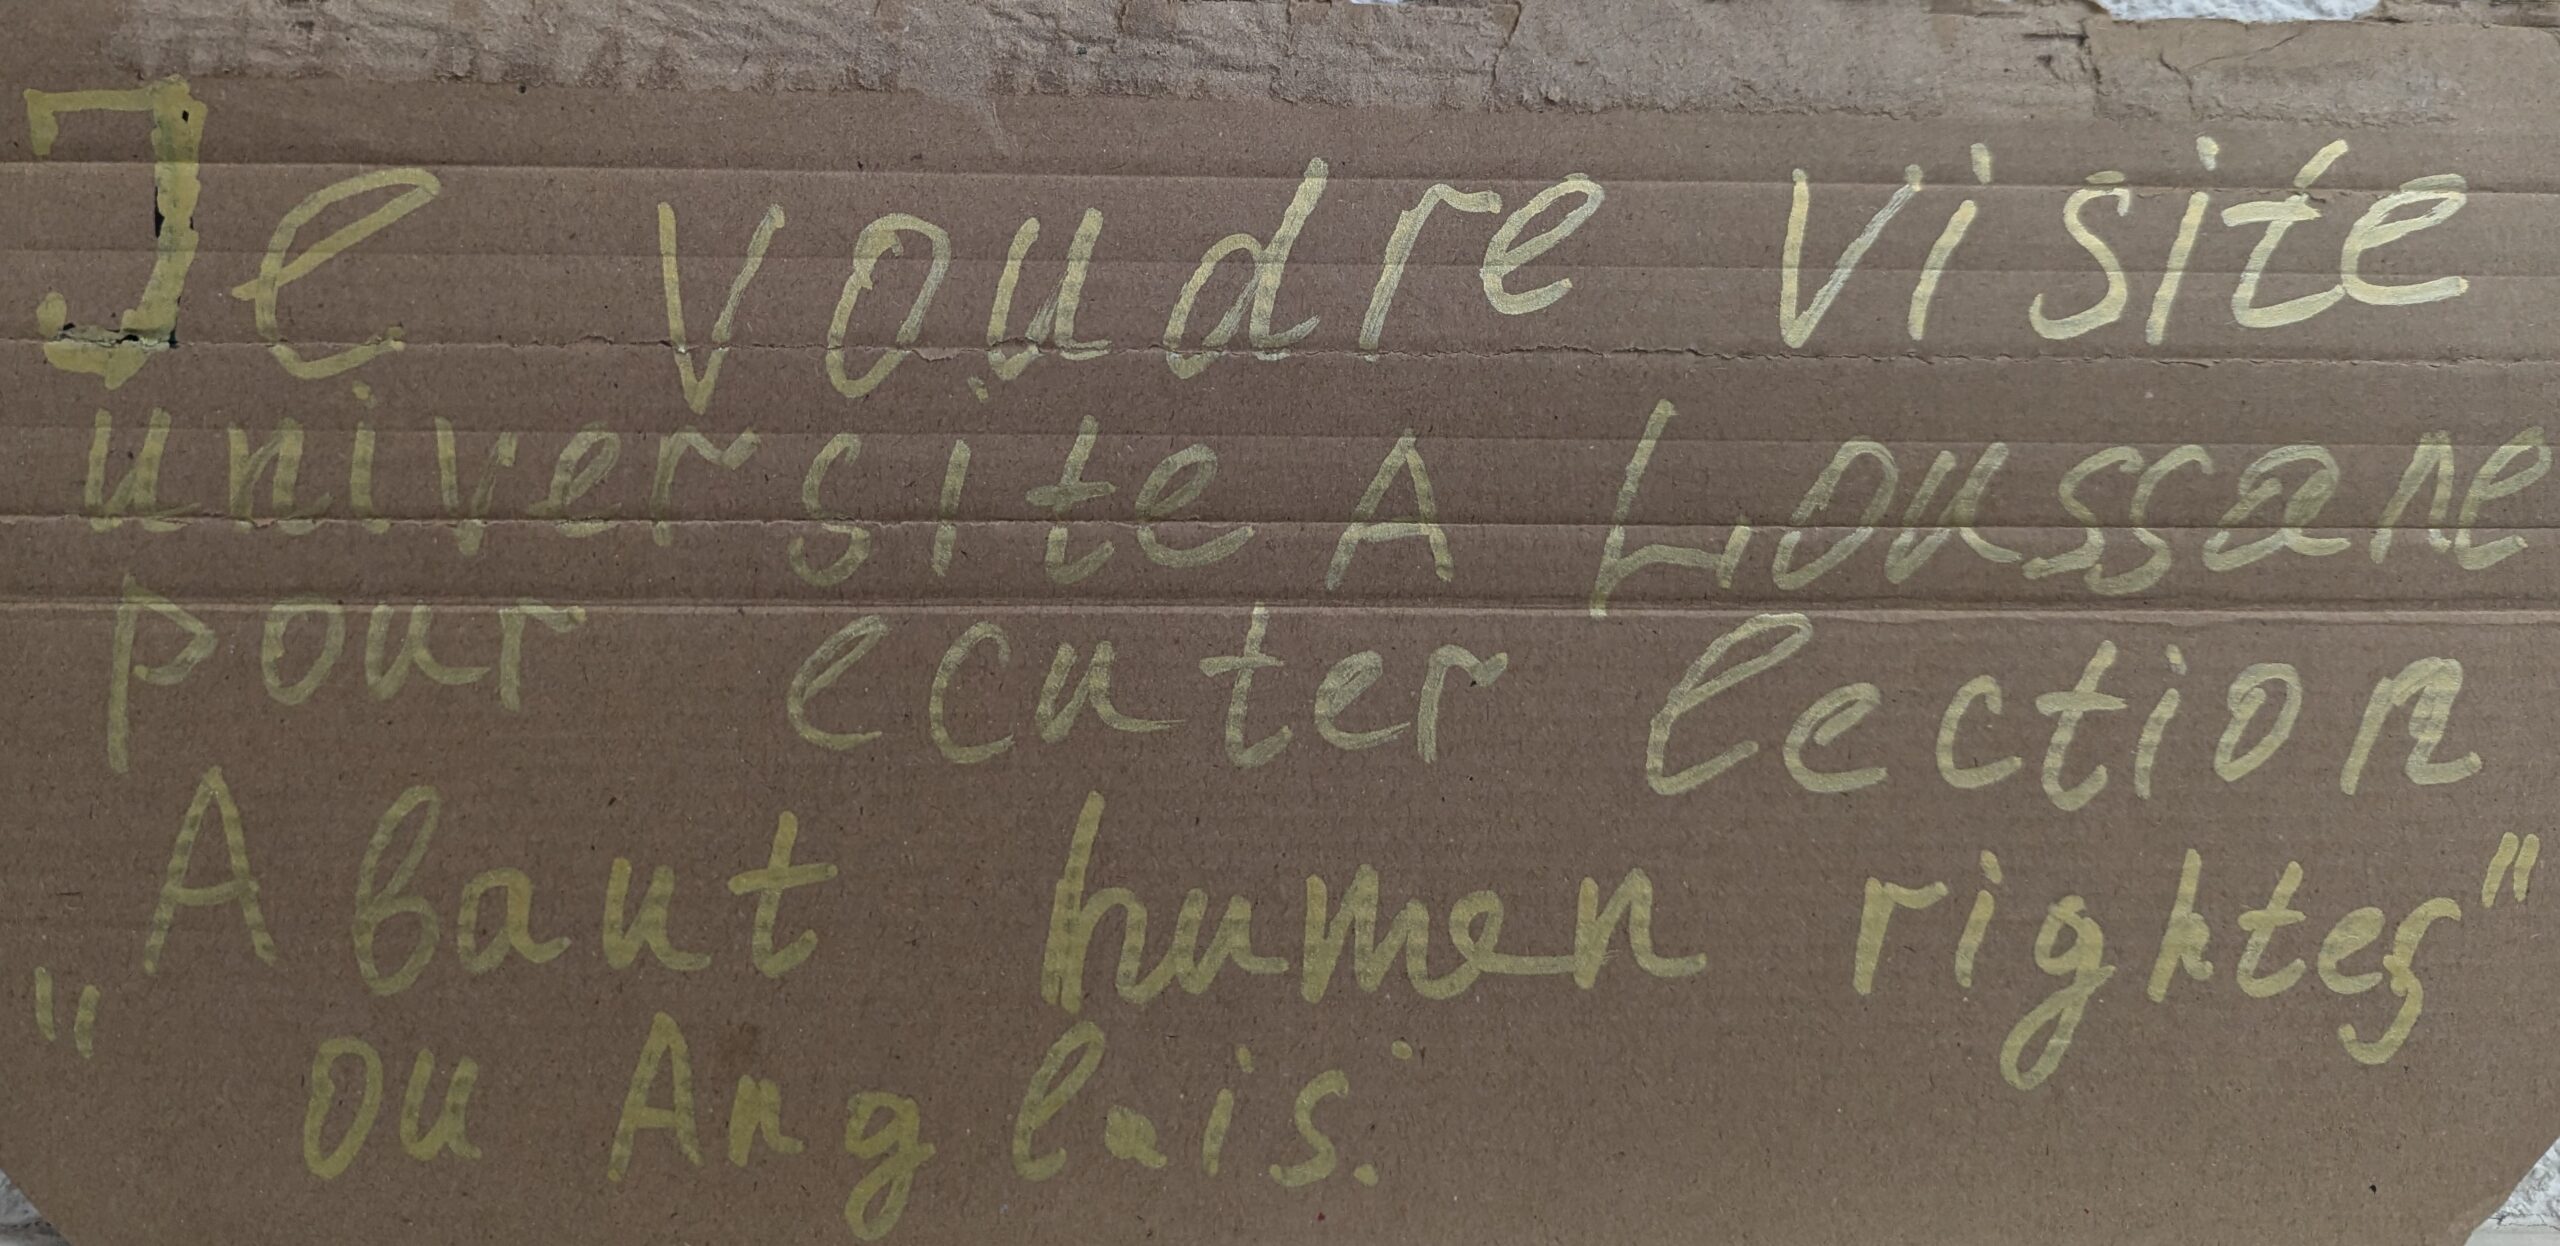 Je voudre visite
universite A Loussane
pour ecuter lection
Abaut human rightes"
" ou Anglais.